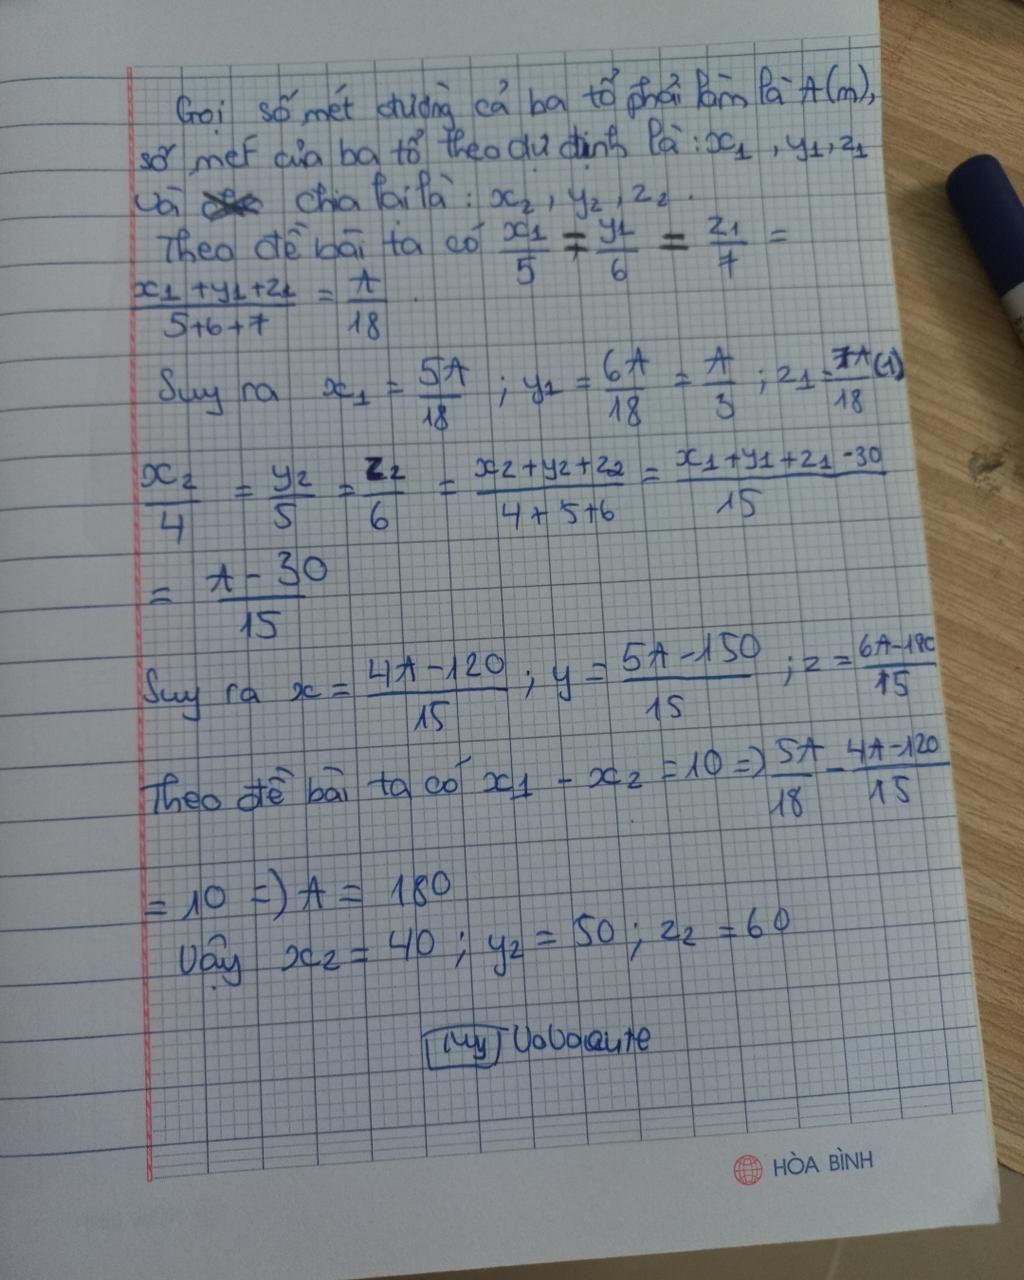 Gọi số mét đường cả ba tổ phải làm là A(m),
số mét của ba tổ theo dự định là: x₁, y₁, z₁
và chia lại là: x₂, y₂, z₂.
Theo đề bài ta có x₁/5 = y₁/6 = z₁/7 =
(x₁+y₁+z₁)/(5+6+7) = A/18.
Suy ra x₁ = 5A/18; y₁ = 6A/18 = A/3; z₁ = 7A/18 (1)
x₂/4 = y₂/5 = z₂/6 = (x₂+y₂+z₂)/(4+5+6) = (x₁+y₁+z₁-30)/15
= (A-30)/15
Suy ra x = (4A-120)/15; y = (5A-150)/15; z = (6A-180)/15
Theo đề bài ta có x₁ - x₂ = 10 => 5A/18 - (4A-120)/15
= 10 => A = 180
Vậy x₂ = 40; y₂ = 50; z₂ = 60
HÒA BÌNH